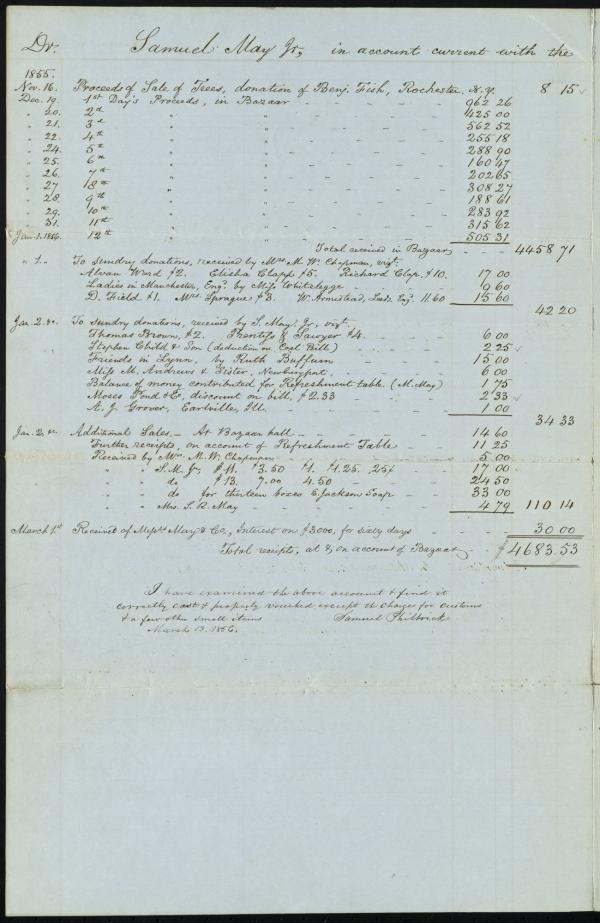 Dr. Samuel May Jr, in account current with the
1855.
Nov. 16. Proceeds of Sale of Trees, donation of Benj. Fish, Rochester, N.Y. 8 15
Dec. 19. 1st Day's Proceeds, in Bazaar - - - - 962 26
" 20. 2d " " - - - - 425 00
" 21. 3d " " - - - - 562 52
" 22. 4th " " - - - - 255 18
" 24. 5th " " - - - - 288 90
" 25. 6th " " - - - - 160 47
" 26. 7th " " - - - - 202 65
" 27 8th " " - - - - 308 27
" 28. 9th " " - - - - 188 61
" 29. 10th " " - - - - 283 92
" 31. 11th " " - - - - 315 62
Jan. 1. 1856. 12th " " - - - - 505 31
Total received in Bazaar - - 4458 71
" 1. " To sundry donations, received by Mrs M. W. Chapman, vizt.
Alvan Ward $2. Elisha Clapp $5. Richard Clap, $10. 17 00
Ladies in Manchester, Engd. by Miss Whitelegge - - - 9 60
D. Field $1. Mrs Sprague $3. W. Armistead, Leeds Eng. 11.60 15 60
42 20
Jan 2. &c. To sundry donations, received by S. May Jr, vizt.
Thomas Brown, $2. Prentiss & Sawyer $4. - - 6 00
Stephen Child & Son (deduction on Coal Bill) - - 2 25
Friends in Lynn, by Ruth Buffum - - 15 00
Miss M. Andrews & Sister, Newburyport. - - 6 00
Balance of money contributed for Refreshment table (M. May) 1 75
Moses Pond & Co, discount on bill, $2.33 - - 2 33
A. J. Grover, Earlville, Ill. - - - 1 00
34 33
Jan 2, &c. Additional Sales, - At Bazaar hall - - - 14 60
Further receipts, on account of Refreshment Table - - 11 25
Received by Mrs. M. W. Chapman - - - 5 00
" " S. M. Jr, $11. $3.50 $1. $1.25. 25¢ - - 17 00
" " do $13. 7.00 4.50 - - - 24 50
" " do for thirteen boxes E. Jackson Soap - - 33 00
" " Mrs. S. R. May - - - 4 79 110 14
March 1st Received of Messrs May & Co., Interest on $3000, for sixty days - - - 30 00
Total receipts, at & on account of Bazaar - $4683.53
I have examined the above account & find it
correctly cast & properly vouched except the charges for customs
& a few other small items Samuel Philbrick
March 13. 1856.